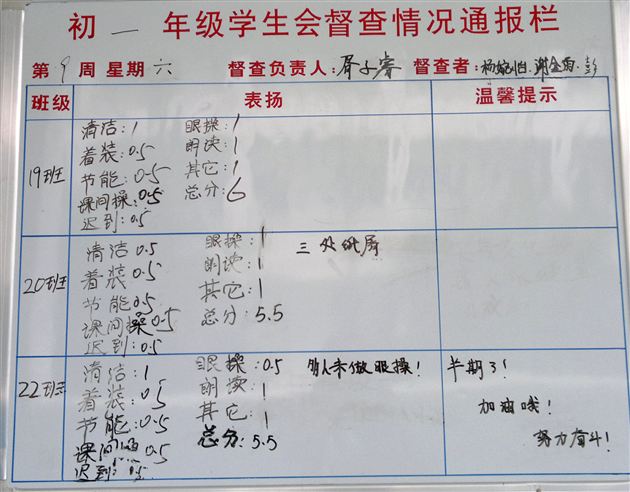 初一年级学生会督查情况通报栏
第9周 星期六 督查负责人: 督查者:
班级 表扬 温馨提示
19班
清洁:1 眼操:1
着装:0.5 朗读:1
节能:0.5 其它:1
课间操:0.5 总分:6
迟到:0.5
20班
清洁0.5 眼操:1 三处纸屑
着装:0.5 朗读:1
节能0.5 其它:1
课间操0.5 总分:5.5
迟到:0.5
22班
清洁:1 眼操:0.5 多人未做眼操! 半期了!
着装:0.5 朗读:1 加油哦!
节能:0.5 其它:1 努力奋斗!
课间操0.5 总分:5.5
迟到:0.5